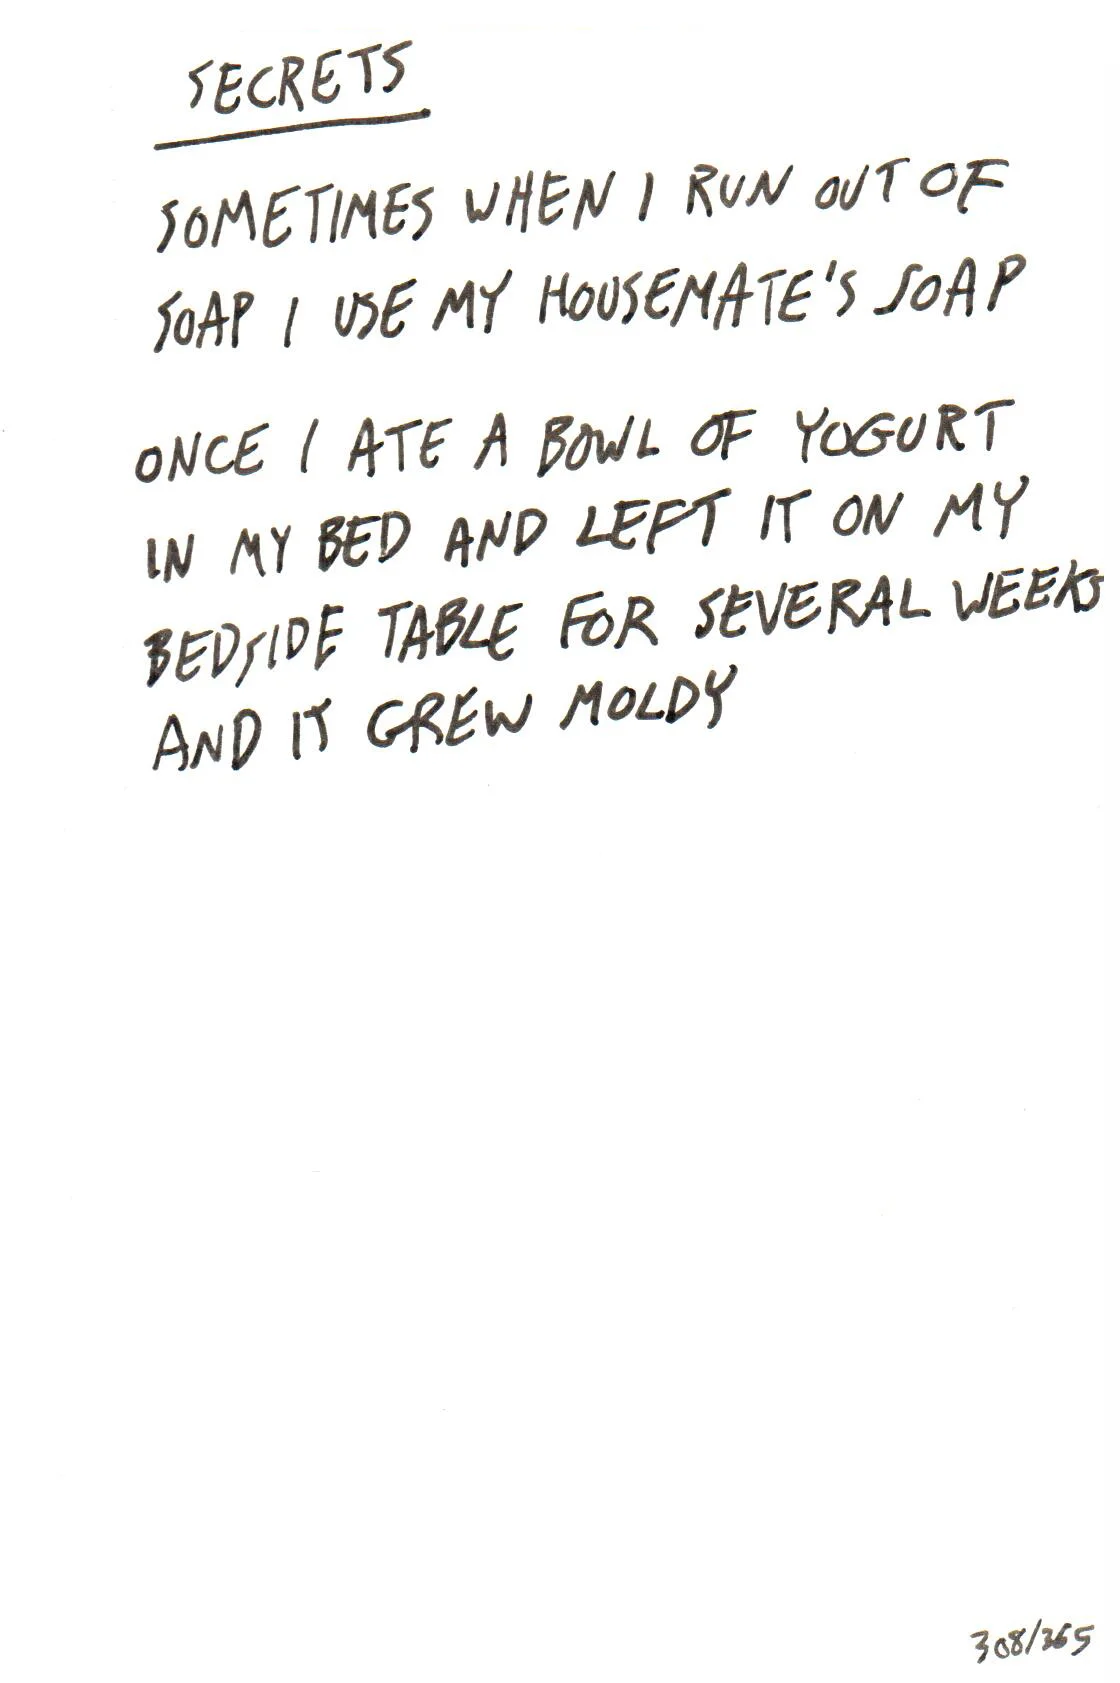 SECRETS
SOMETIMES WHEN I RUN OUT OF
SOAP I USE MY HOUSEMATE'S SOAP
ONCE I ATE A BOWL OF YOGURT
IN MY BED AND LEFT IT ON MY
BEDSIDE TABLE FOR SEVERAL WEEKS
AND IT GREW MOLDY
308/365